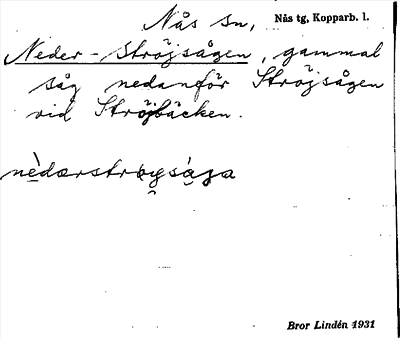 Nås sn, Nås tg, Kopparb. l.
Neder-Ströjsågen, gammal
såg nedanför Ströjsågen
vid Ströjbäcken.
nèdərstrøysága
Bror Lindén 1931